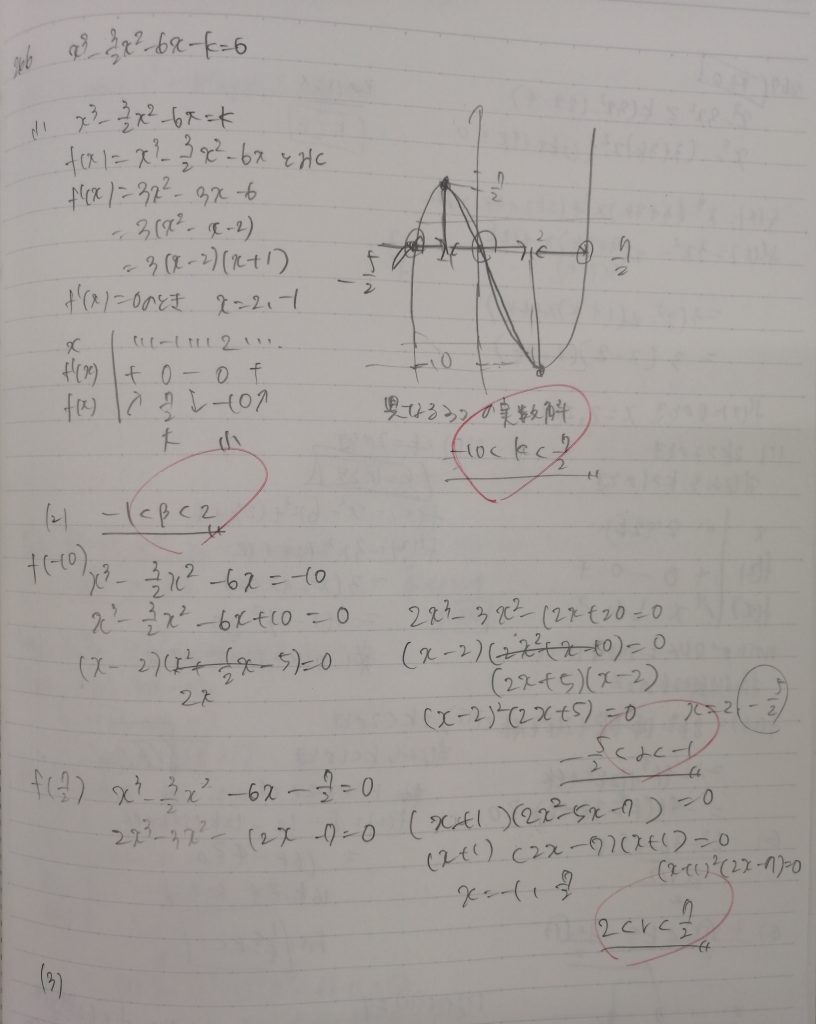 x³-3/2x²-6x-k=6
(1) x³-3/2x²-6x=k
f(x)=x³-3/2x²-6xとおく
f'(x)=3x²-3x-6
=3(x²-x-2)
=3(x-2)(x+1)
f'(x)=0のとき x=2,-1
x … -1 … 2 …
f'(x) + 0 - 0 +
f(x) ↗ 7/2 ↘ -10 ↗
大 小
7/2
2
-5/2
7/2
-10
異なる3つの実数解
-10<k<7/2
(2) -1<β<2
f(-10) x³-3/2x²-6x=-10
x³-3/2x²-6x+10=0
(x-2)(x²+1/2x-5)=0
2x
2x³-3x²-12x+20=0
(x-2)(2x²+x-10)=0
(2x+5)(x-2)
(x-2)²(2x+5)=0 x=2,-5/2
-5/2<α<-1
f(7/2) x³-3/2x²-6x-7/2=0
2x³-3x²-12x-7=0
(x+1)(2x²-5x-7)=0
(x+1)(2x-7)(x+1)=0
(x+1)²(2x-7)=0
x=-1,7/2
2<r<7/2
(3)